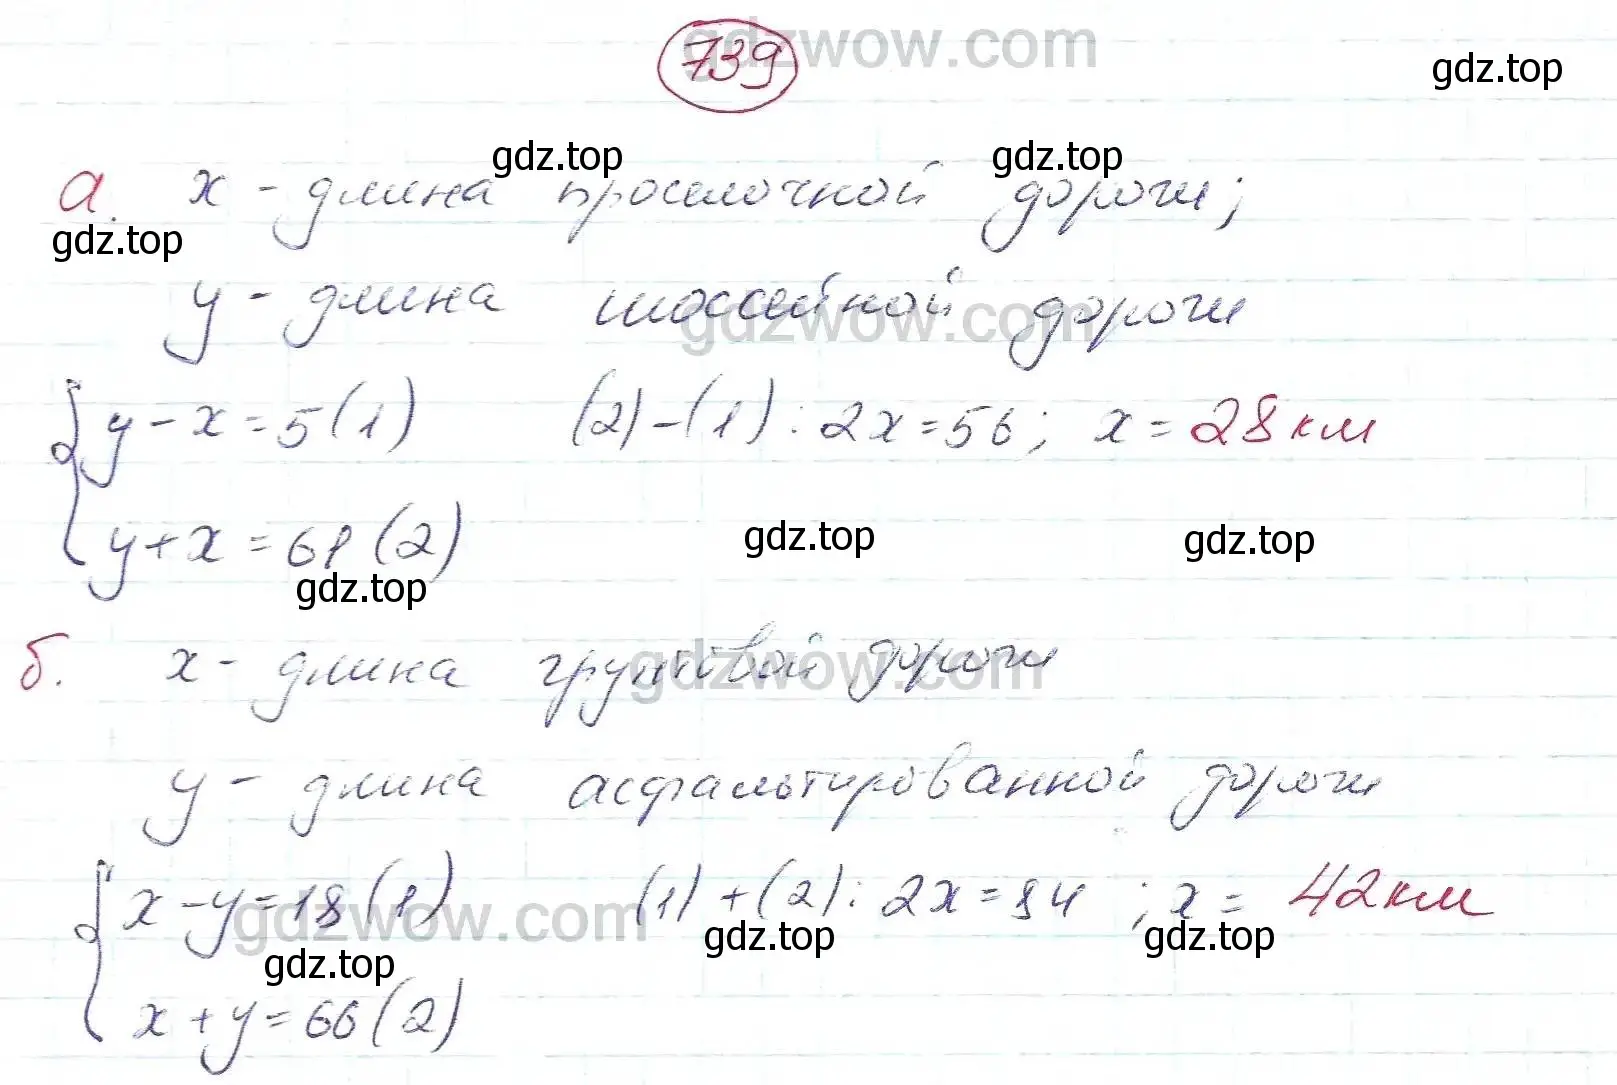 gdzwow.com
739
gdz.top
gdz.top gdz.top
а. x - длина проселочной дороги;
gdz.top
y - длина шоссейной дороги
gdzwow.com
y - x = 5 (1) (2) - (1) : 2x = 56; x = 28 км
y + x = 61 (2)
gdz.top gdz.top
gdz.top
б. x - длина грунтовой дороги
gdzwow.com
y - длина асфальтированной дороги
x - y = 18 (1) (1) + (2) : 2x = 84 ; x = 42 км
gdzwow.com
gdz.top gdz.top
gdz.top
x + y = 66 (2)